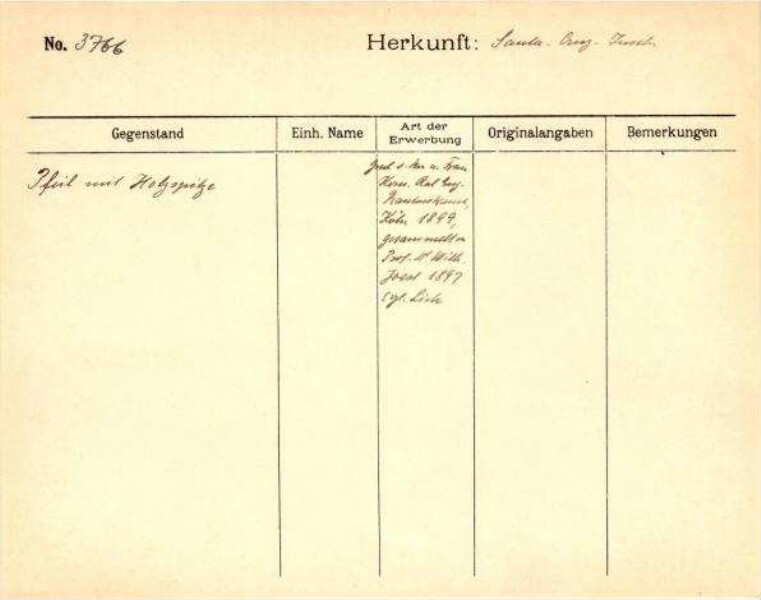 No. 3766
Herkunft: Santa-Cruz-Inseln
Gegenstand
Einh. Name
Art der Erwerbung
Originalangaben
Bemerkungen
Pfeil mit Holzspitze
u. Frau
Kom. Rat Eug.
Köln 1899,
gesammelt v.
Prof. Dr Wilh.
Joest 1897